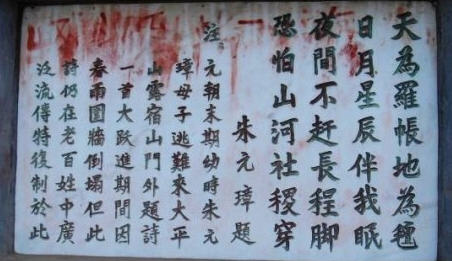 天為羅帳地為氊
日月星辰伴我眠
夜間不赶長程脚
恐怕山河社稷穿
朱元璋題
注 元朝末期幼時朱元
璋母子逃難來大平
山露宿山門外題詩
一首大跃進期間因
春雨圍牆倒塌但此
詩仍在老百姓中廣
泛流傳特復制於此